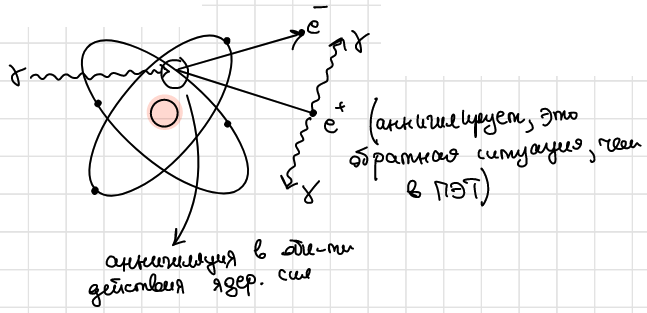 e⁻
γ
γ
e⁺
(аннигилирует, это
обратная ситуация, чем
в ПЭТ)
γ
аннигиляция в обл-ти
действия ядер. сил